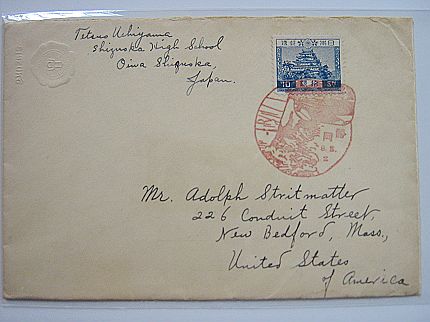 Tetsuo Uchiyama
Shizuoka High School
Oiwa Shizuoka,
Japan.
大日本帝國郵便
10 拾錢 10
靜岡
8.8.
2
Mr. Adolph Stritmatter
226 Conduit Street,
New Bedford, Mass.,
United States
of America